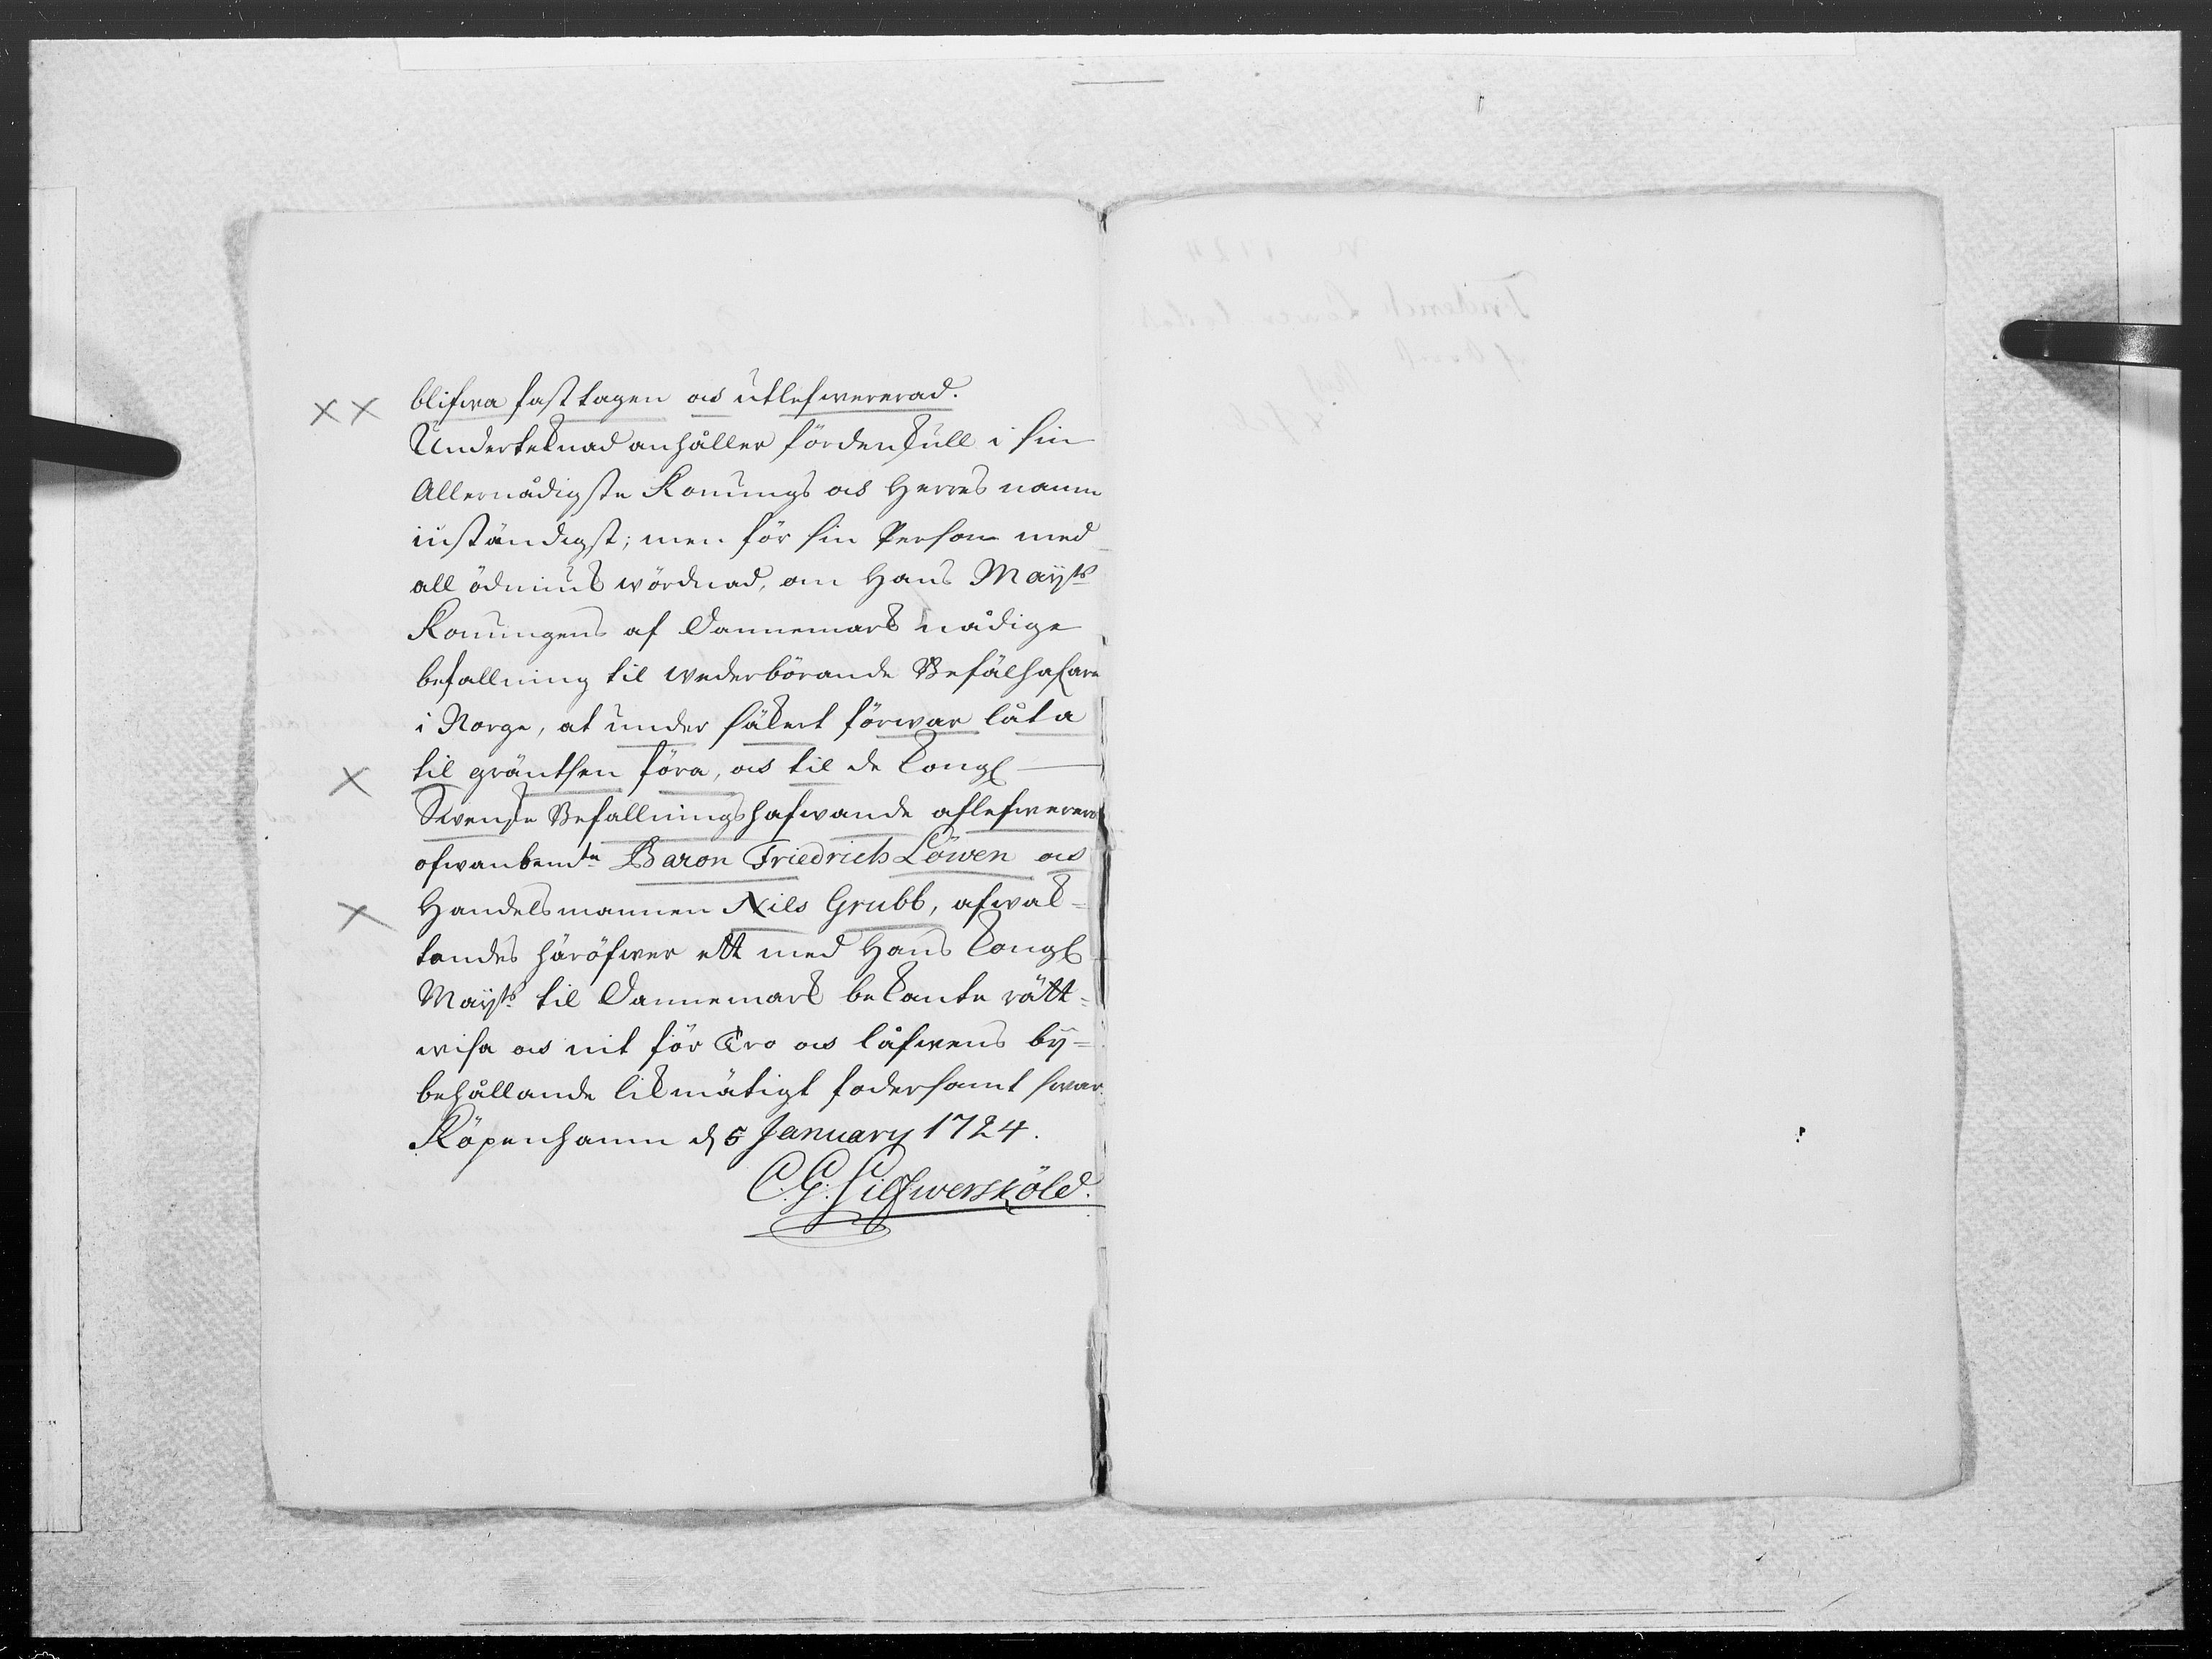 blifwa fasttagen och utlefwererad.
Underteknad anhåller fördenskull i sin
Allernådigste Konungs och Herres namn
inständigst; men för sin Person med
all ödmiuk wördnad, om Hans Maÿ:ts
Konungens af Dannemark nådige
befallning til wederbörande Befälhafare
i Norge, at under säkert förwar låta
til gräntsen föra, och til de Kongl
Swenske Befallningshafwande aflefwerera
ofwanbem:te Baron Friedrich Löwen och
Handelsmannen Nils Grubb, afwak=
tandes häröfwer ett med Hans Kongl
Maÿ:ts til Dannemark bekante rätt=
wisa och nit för Tro och låfwens by=
behållande likmätigt fodersamt swar.
Köpenhamn d 5 January 1724.
C. G. Silfwersköld.